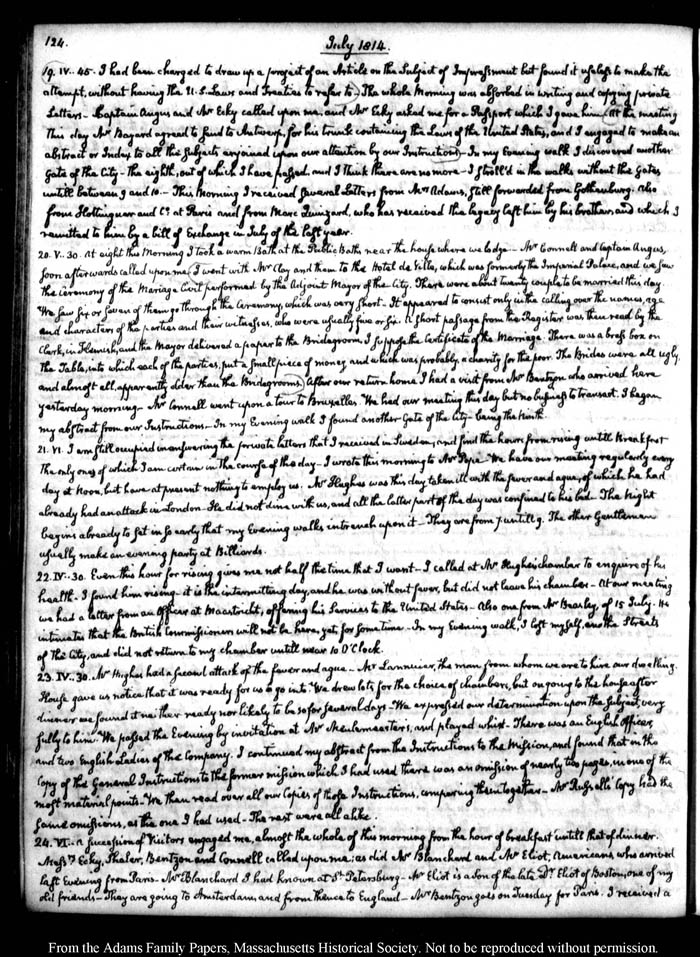 124.
July 1814.
19. IV.. 45. I had been charged to draw up a project of an Article on the Subject of Impressment but found it useless to make the
attempt, without having the U.S. Laws and Treaties to refer to.) The whole Morning was absorbed in writing and copying private
Letters. Captain Angus and Mr Ecky called upon me, and Mr Ecky asked me for a Passport which I gave him (At the meeting
this day Mr Bayard agreed to send to Antwerp, for his trunk containing the Laws of the United States, and I engaged to make an
abstract or Index to all the Subjects enjoined upon our attention by our Instructions)—In my Evening walk I discovered another
Gate of the City—the eighth, out of which I have passed, and I think there are no more—I stroll'd in the walks without the Gates
untill between 9 and 10.—This Morning I received several Letters from Mrs Adams, still forwarded from Gothenburg. Also
from Hottinguer and Co at Paris and from Marc Quinzard, who has received the legacy left him by his brother, and which I
remitted to him by a bill of Exchange in July of the last year.
20. V.. 30. At eight this Morning I took a warm Bath at the Public Baths near the house where we lodge.—Mr Connell and Captain Angus,
soon afterwards called upon me, (I went with Mr Clay and them to the Hotel de Ville, which was formerly the Imperial Palace, and we saw
the ceremony of the Mariage Civil performed by the Adjoint Mayor of the City. There were about twenty couple to be married this day
We saw six or seven of them go through the Ceremony, which was very short. It appeared to consist only in the calling over the names, age
and characters of the parties and their witnesses, who were usually five or six. A short passage from the Register was then read by the
Clerk, in Flemish, and the Mayor delivered a paper to the Bridegroom, I suppose the Certificate of the Marriage. There was a brass box on
the Table, into which each of the parties, put a small piece of money and which was probably a charity for the poor. The Brides were all ugly,
and almost all, apparently older than the Bridegrooms.) After our return home I had a visit from Mr Bentzon who arrived here
yesterday morning—Mr Connell went upon a tour to Bruxelles. We had our meeting this day but no business to transact. I began
my abstract from our Instructions—In my Evening walk I found another Gate of the City—being the ninth.
21. VI. I am still occupied in answering the private letters that I received in Sweden, and find the hours from rising untill Breakfast
the only ones of which I am certain in the course of the day—I wrote this morning to Mr Pope. We have our meeting regularly every
day at Noon, but have at present nothing to employ us. Mr Hughes was this day taken ill with the fever and ague, of which he had
already had an attack in London—He did not dine with us, and all the latter part of the day was confined to his bed. The Night
begins already to set in so early that my Evening walks intrench upon it—They are from 7. untill 9. The other Gentlemen
usually make an evening party at Billiards.
22. IV.. 30. Even this hour for rising gives me not half the time that I want—I called at Mr Hughes's chamber to enquire of his
health. I found him rising. it is the intermitting day, and he was without fever, but did not leave his chamber—At our meeting
we had a letter from an Officer at Maestricht, offering his Services to the United States—Also one from Mr Beasley, of 15 July. He
intimates that the British Commissioners will not be here, yet for some time—In my Evening walk, I lost myself, in the Streets
of the City, and did not return to my chamber untill near 10 O'Clock.
23. IV.. 30. Mr Hughes had a second attack of the fever and ague—Mr Lannuier, the man from whom we are to hire our dwelling
House gave us notice that it was ready for us to go into. We drew lots for the choice of chambers, but on going to the house after
dinner we found it neither ready nor likely to be so for several days. We expressed our determination upon the subject, very
fully to him. We passed the Evening by invitation at Mr Meulemeester's, and played whist—There was an English Officer,
and two English Ladies of the Company. I continued my abstract from the Instructions to the Mission, and found that in the
Copy of the General Instructions to the former mission which I had used there was an omission of nearly two pages, in one of the
most material points. We then read over all our Copies of those Instructions, comparing them together—Mr Russell's Copy had the
same omissions, as the one I had used. The rest were all alike.
24. VI.. A succession of Visitors engaged me, almost the whole of this morning from the hour of breakfast untill that of dinner.
Messrs Ecky, Shaler, Bentzon and Connell called upon me; as did Mr Blanchard and Mr Eliot, Americans who arrived
last Evening from Paris—Mr Blanchard I had known at St Petersburg—Mr Eliot is a Son of the late Dr Eliot of Boston, one of my
old friends—They are going to Amsterdam, and from thence to England—Mr Bentzon goes on Tuesday for Paris. I received a
From the Adams Family Papers, Massachusetts Historical Society. Not to be reproduced without permission.